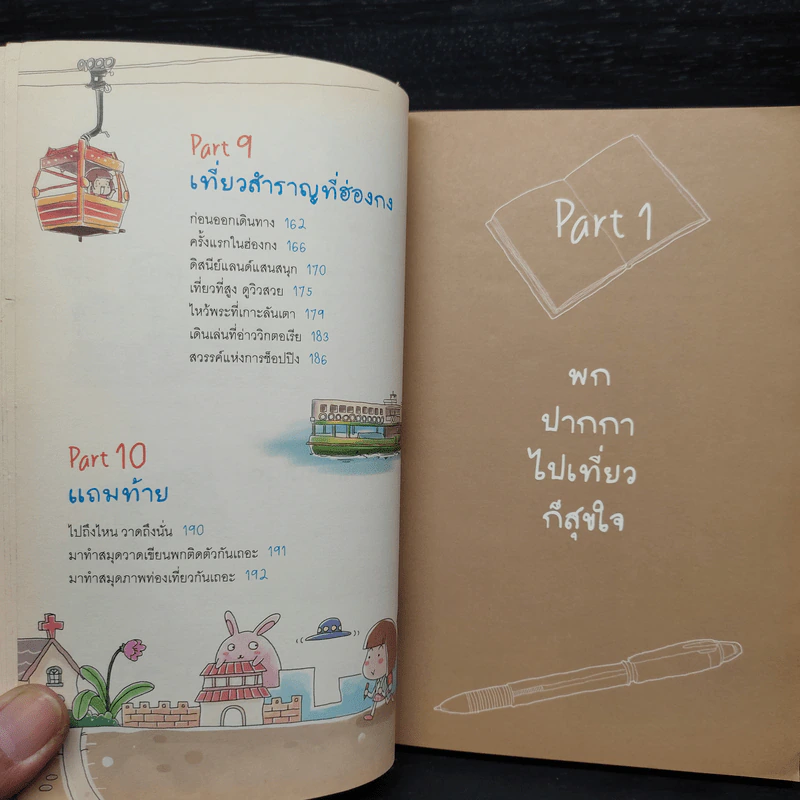 Part 9
เที่ยวสำราญที่ฮ่องกง
ก่อนออกเดินทาง 162
ครั้งแรกในฮ่องกง 166
ดิสนีย์แลนด์แสนสนุก 170
เที่ยวที่สูง ดูวิวสวย 175
ไหว้พระที่เกาะลันเตา 179
เดินเล่นที่อ่าววิกตอเรีย 183
สวรรค์แห่งการช็อปปิง 186
Part 10
แถมท้าย
ไปถึงไหน วาดถึงนั่น 190
มาทำสมุดวาดเขียนพกติดตัวกันเถอะ 191
มาทำสมุดภาพท่องเที่ยวกันเถอะ 192
Part 1
พก
ปากกา
ไปเที่ยว
ก็สุขใจ